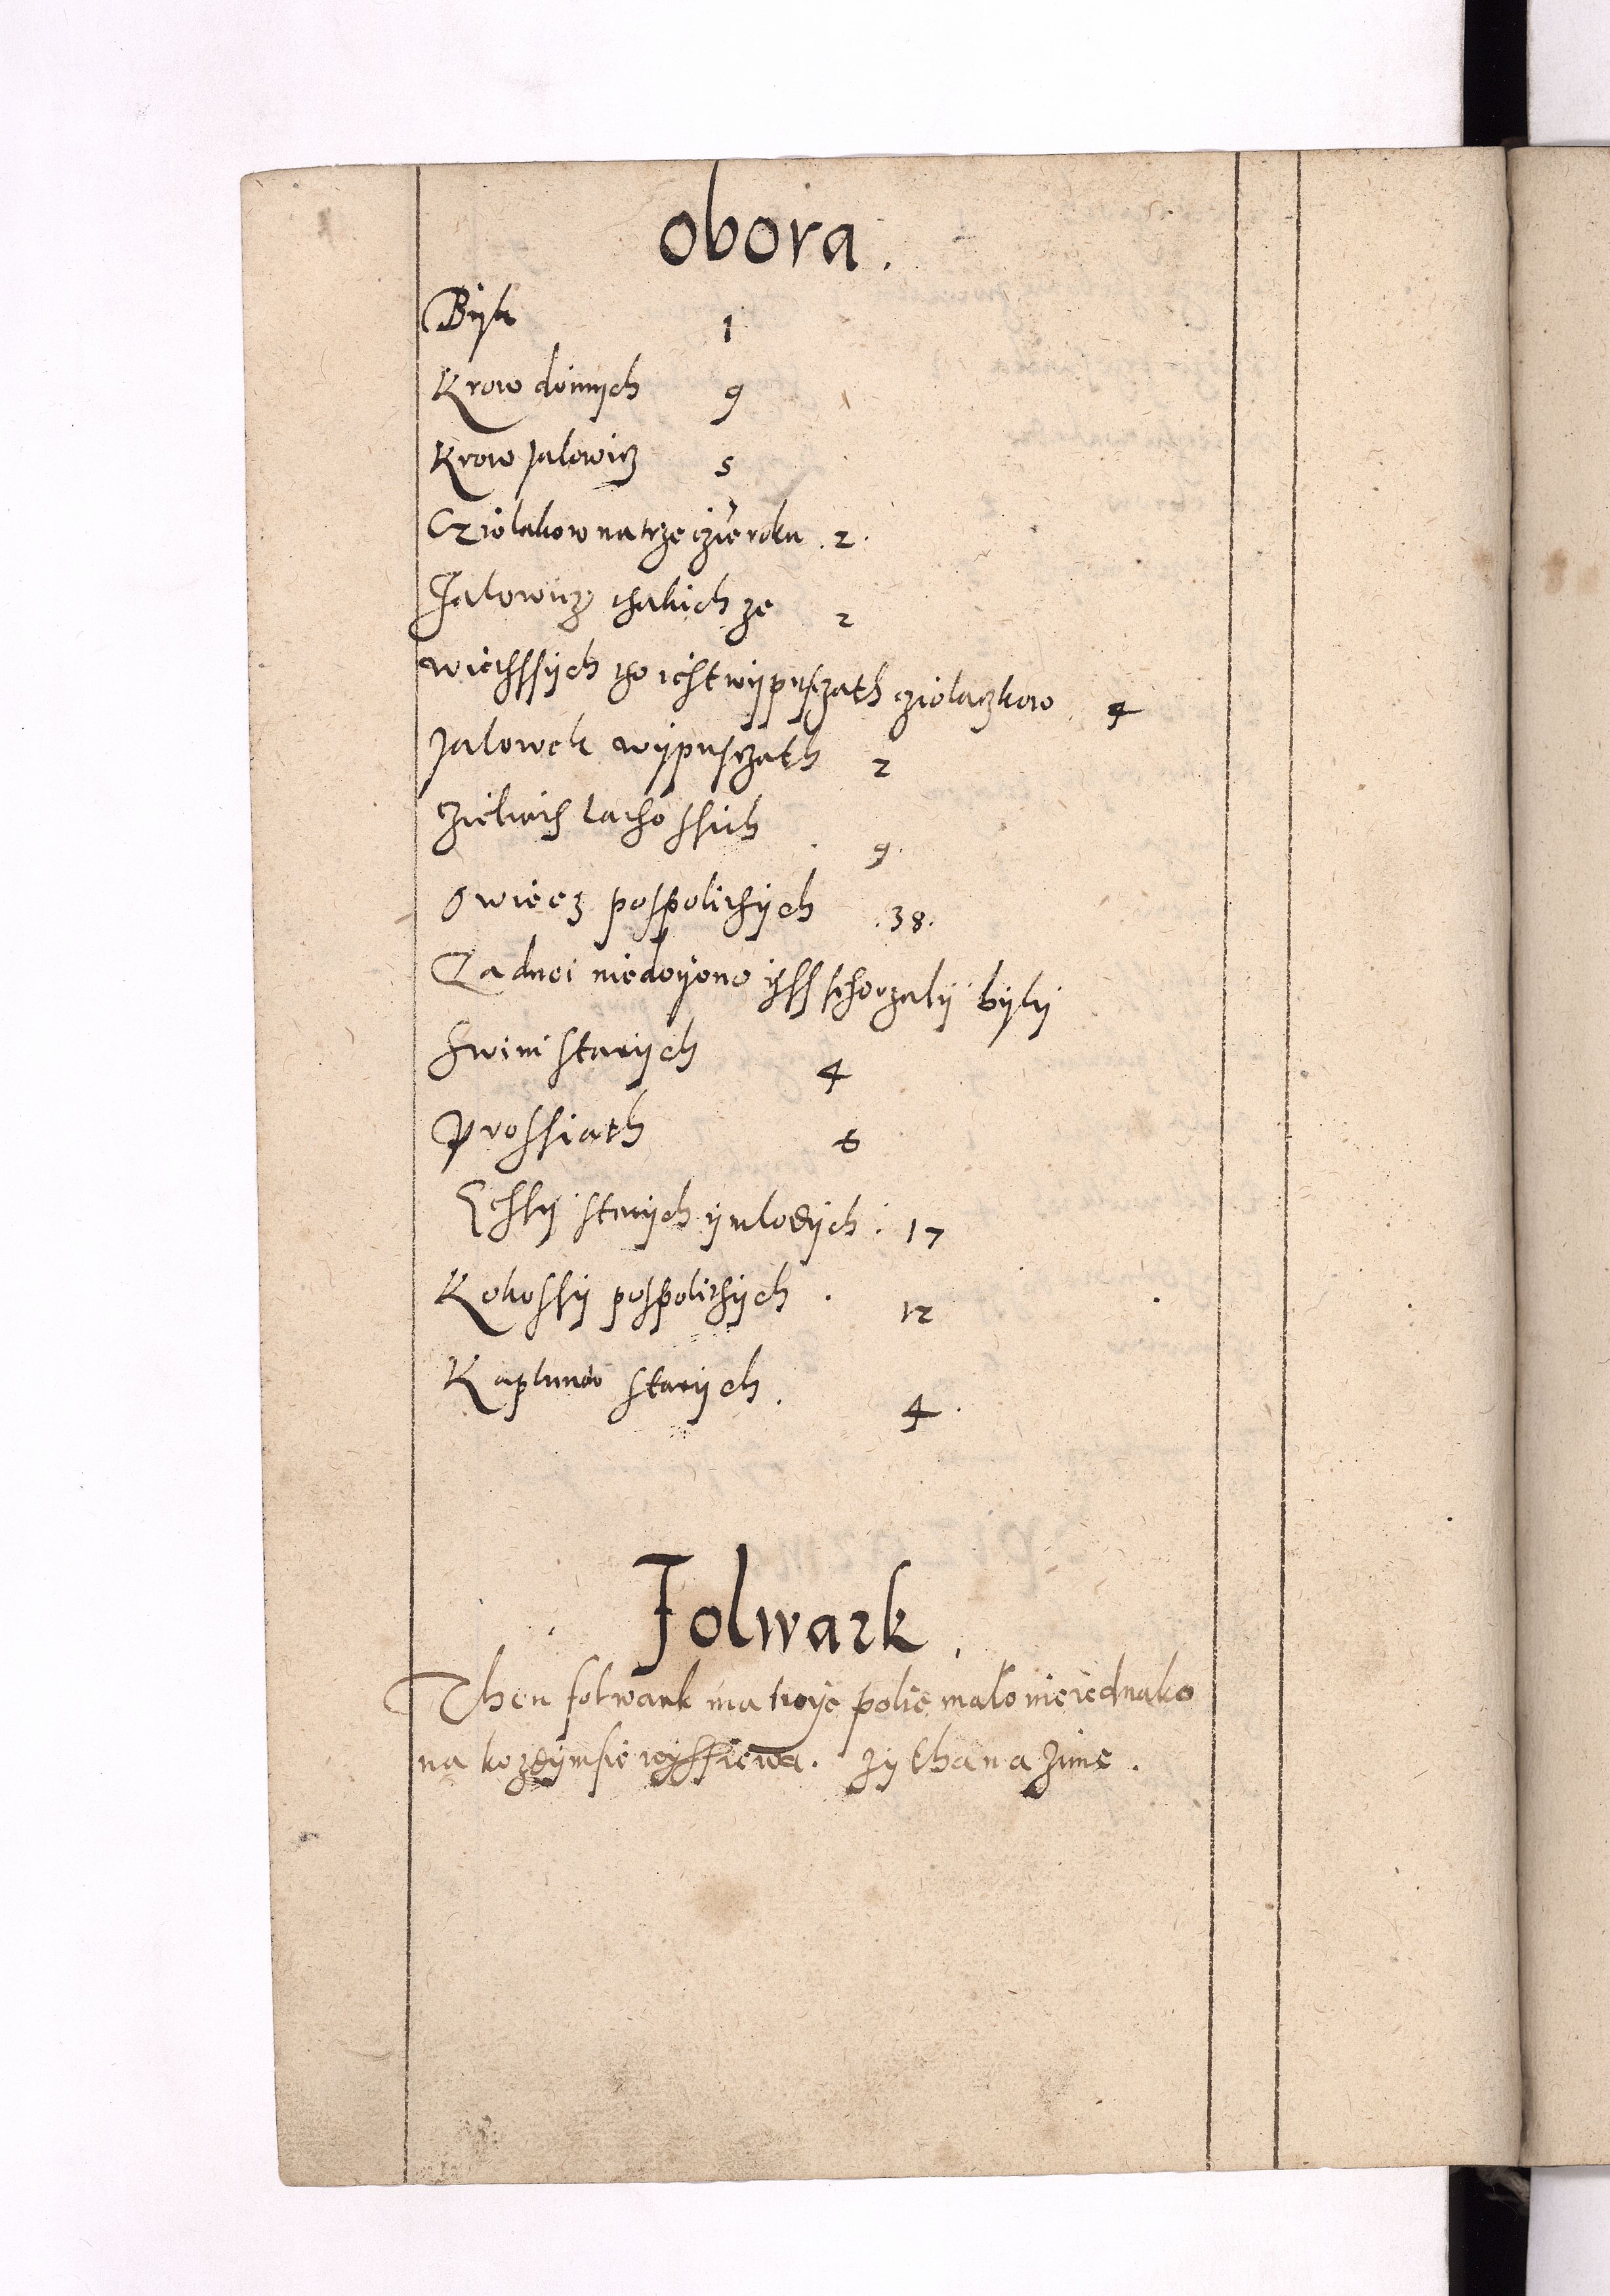 obora.
Byk 1
Krow doinych 9
Krow Jalowicz 5
Cziolakow na trze czie roku .2.
Jalowicz thakich ze 2
wiethssych tho iest wypusczath cziolaczkow 4
Jalowek wypusczath 2
Zielicth lathossich 9.
Owiecz pospolithych .38.
Zadnei niedoyono isss schorzaly byly
Swini starych 4
Prossiath 6
Gessy starych y mlodych. 17
Kokossy pospolithych. 12
Kaplunow starych. 4.
Folwark.
Then folwark ma troye polie malo nie iednako
na kozdym sie wyssiewa. Zytha na zime.